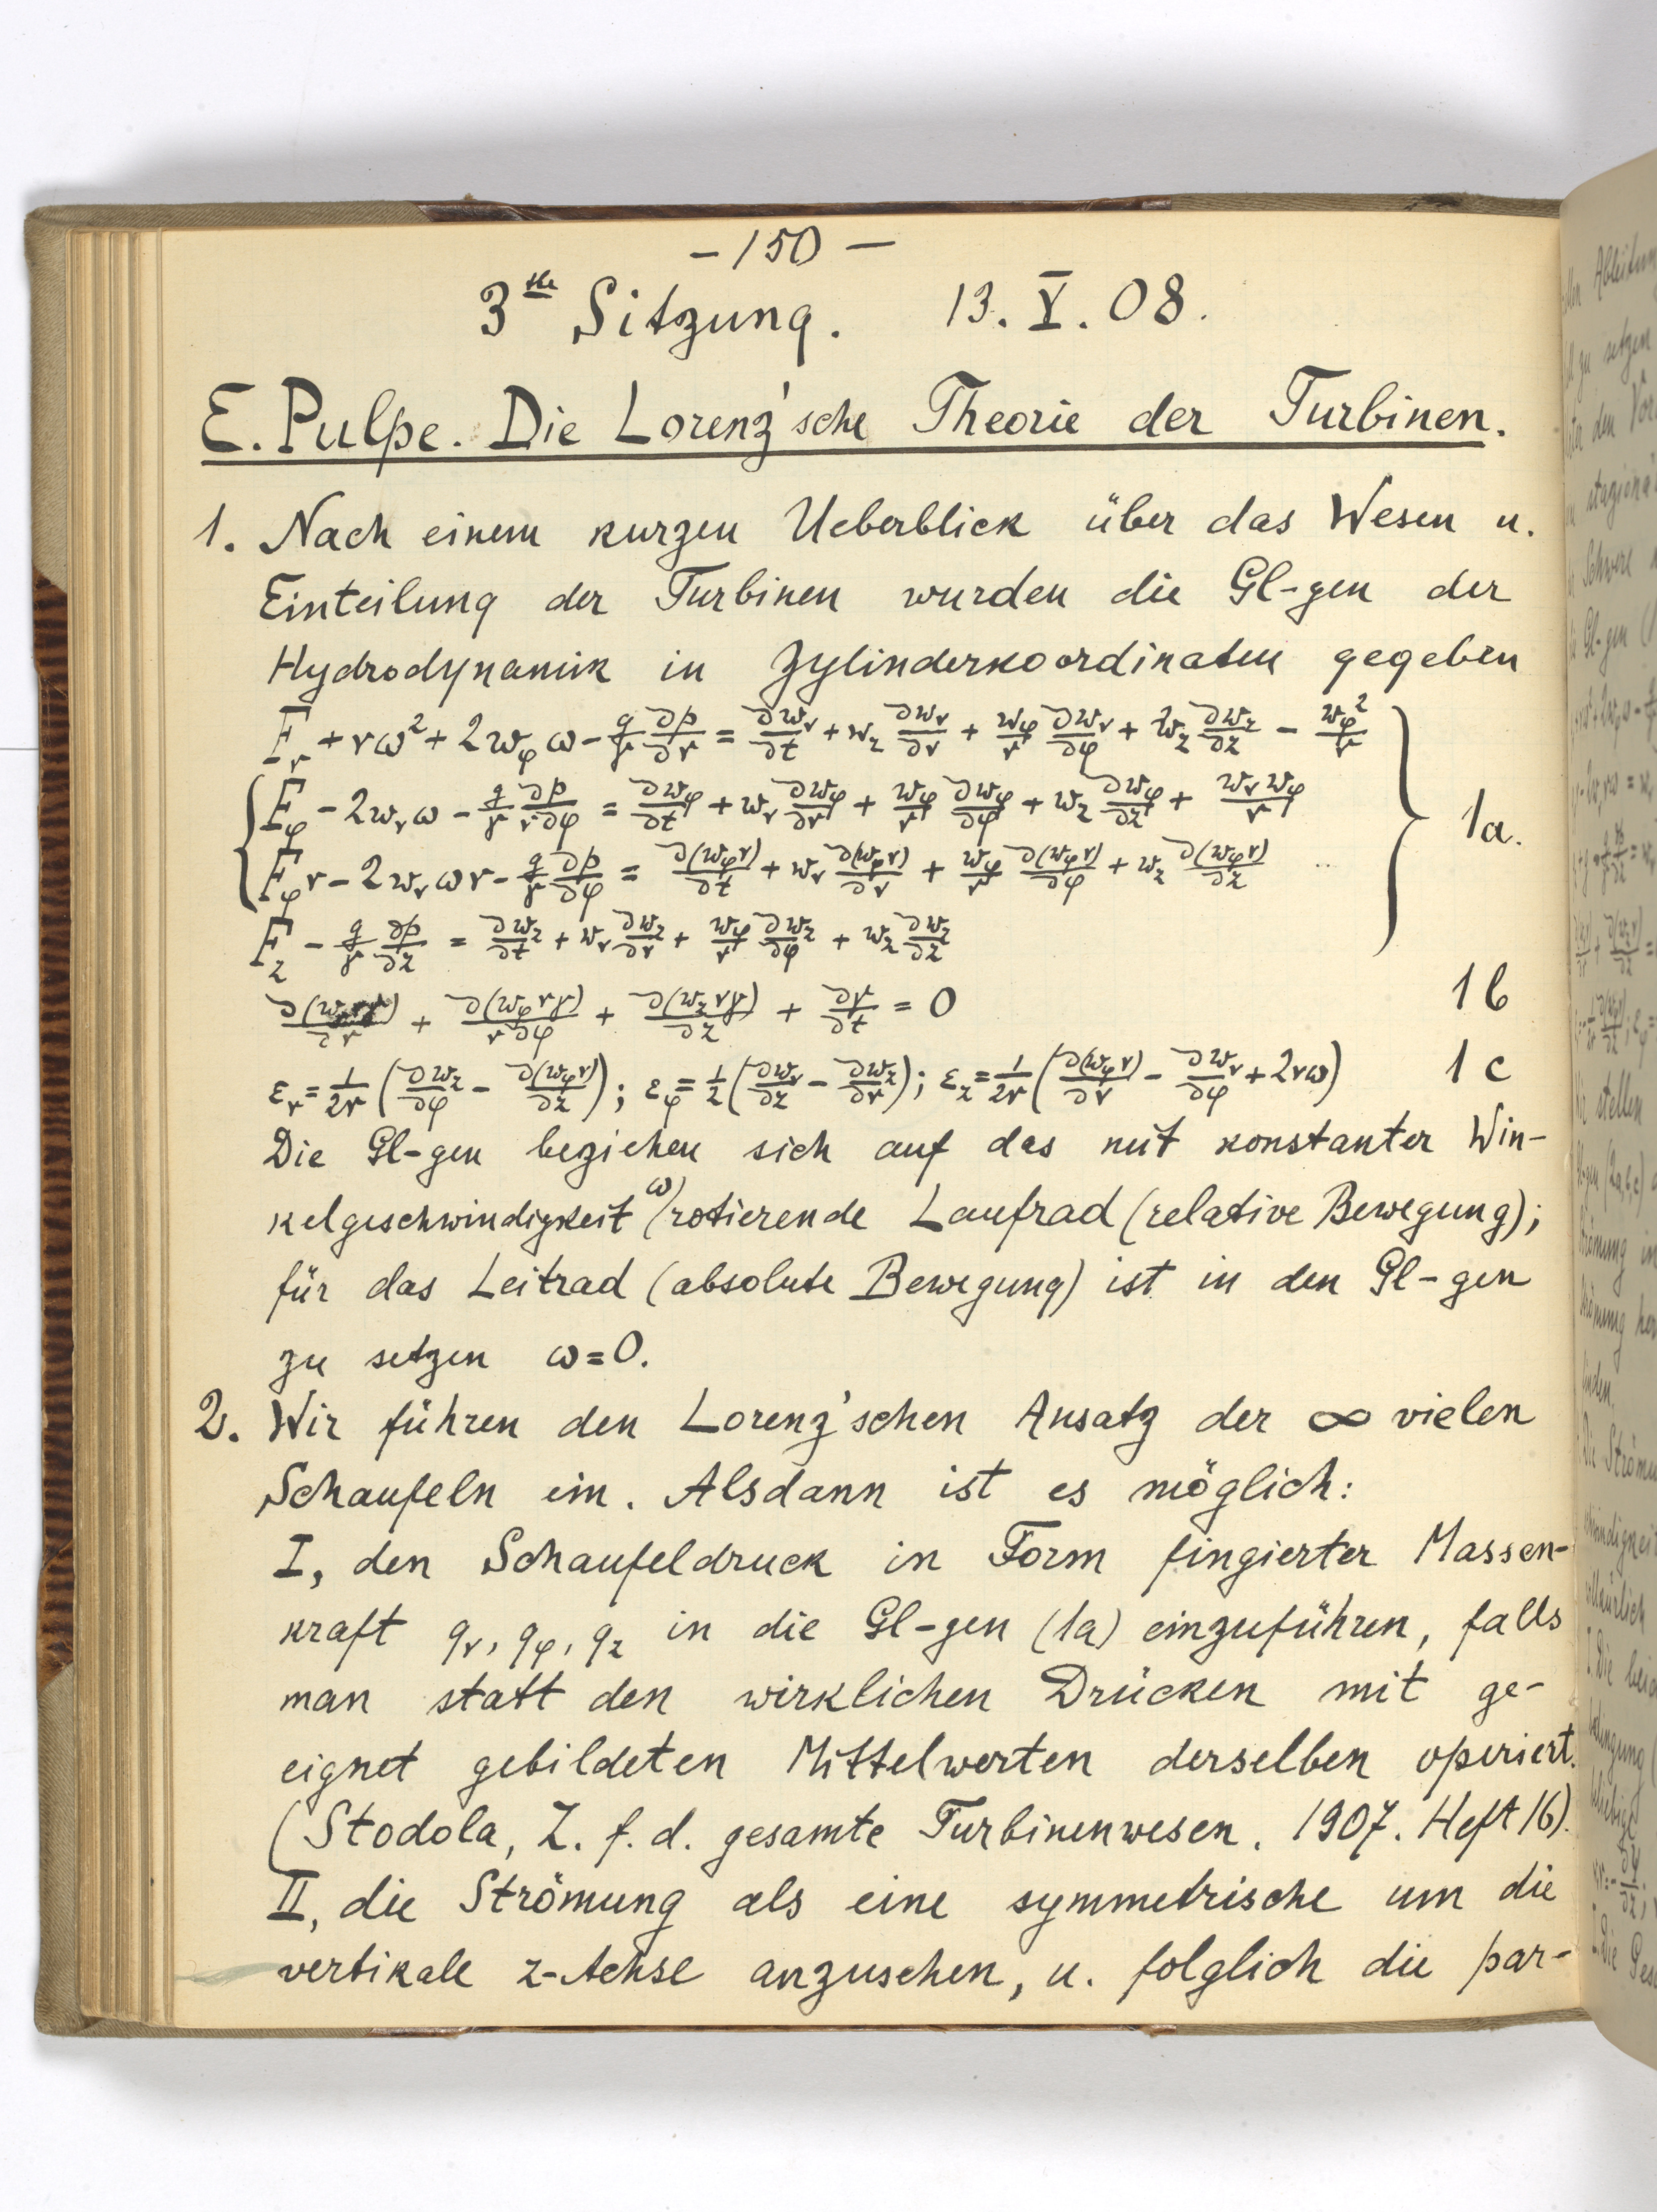 – 150 –
3te Sitzung. 13. V. 08.
E. Pulpe. Die Lorenz'sche Theorie der Turbinen.
1. Nach einem kurzen Ueberblick über das Wesen u.
Einteilung der Turbinen wurden die Gl-gen der
Hydrodynamik in Zylinderkoordinaten gegeben
F_r + rω² + 2w_φ ω − g/γ ∂p/∂r = ∂w_r/∂t + w_z ∂w_r/∂r + w_φ/r ∂w_r/∂φ + w_z ∂w_z/∂z − w_φ²/r
F_φ − 2w_r ω − g/γ ∂p/r∂φ = ∂w_φ/∂t + w_r ∂w_φ/∂r + w_φ/r ∂w_φ/∂φ + w_z ∂w_φ/∂z + w_r w_φ/r 1a.
F_φ r − 2w_r ωr − g/γ ∂p/∂φ = ∂(w_φ r)/∂t + w_r ∂(w_φ r)/∂r + w_φ/r ∂(w_φ r)/∂φ + w_z ∂(w_φ r)/∂z
F_z − g/γ ∂p/∂z = ∂w_z/∂t + w_r ∂w_z/∂r + w_φ/r ∂w_z/∂φ + w_z ∂w_z/∂z
∂(w_r rγ)/∂r + ∂(w_φ rγ)/r∂φ + ∂(w_z rγ)/∂z + ∂γ/∂t = 0 1b
ε_r = 1/2r (∂w_z/∂φ − ∂(w_φ r)/∂z); ε_φ = 1/2 (∂w_r/∂z − ∂w_z/∂r); ε_z = 1/2r (∂(w_φ r)/∂r − ∂w_r/∂φ + 2rω) 1c
Die Gl-gen beziehen sich auf das mit konstanter Win-
kelgeschwindigkeit (ω) rotierende Laufrad (relative Bewegung);
für das Leitrad (absolute Bewegung) ist in den Gl-gen
zu setzen ω = 0.
2. Wir führen den Lorenz'schen Ansatz der ∞ vielen
Schaufeln ein. Alsdann ist es möglich:
I, den Schaufeldruck in Form fingierter Massen-
kraft q_r, q_φ, q_z in die Gl-gen (1a) einzuführen, falls
man statt den wirklichen Drücken mit ge-
eignet gebildeten Mittelwerten derselben operiert.
(Stodola, Z. f. d. gesamte Turbinenwesen. 1907. Heft 16).
II, die Strömung als eine symmetrische um die
vertikale z-Achse anzusehen, u. folglich die par-